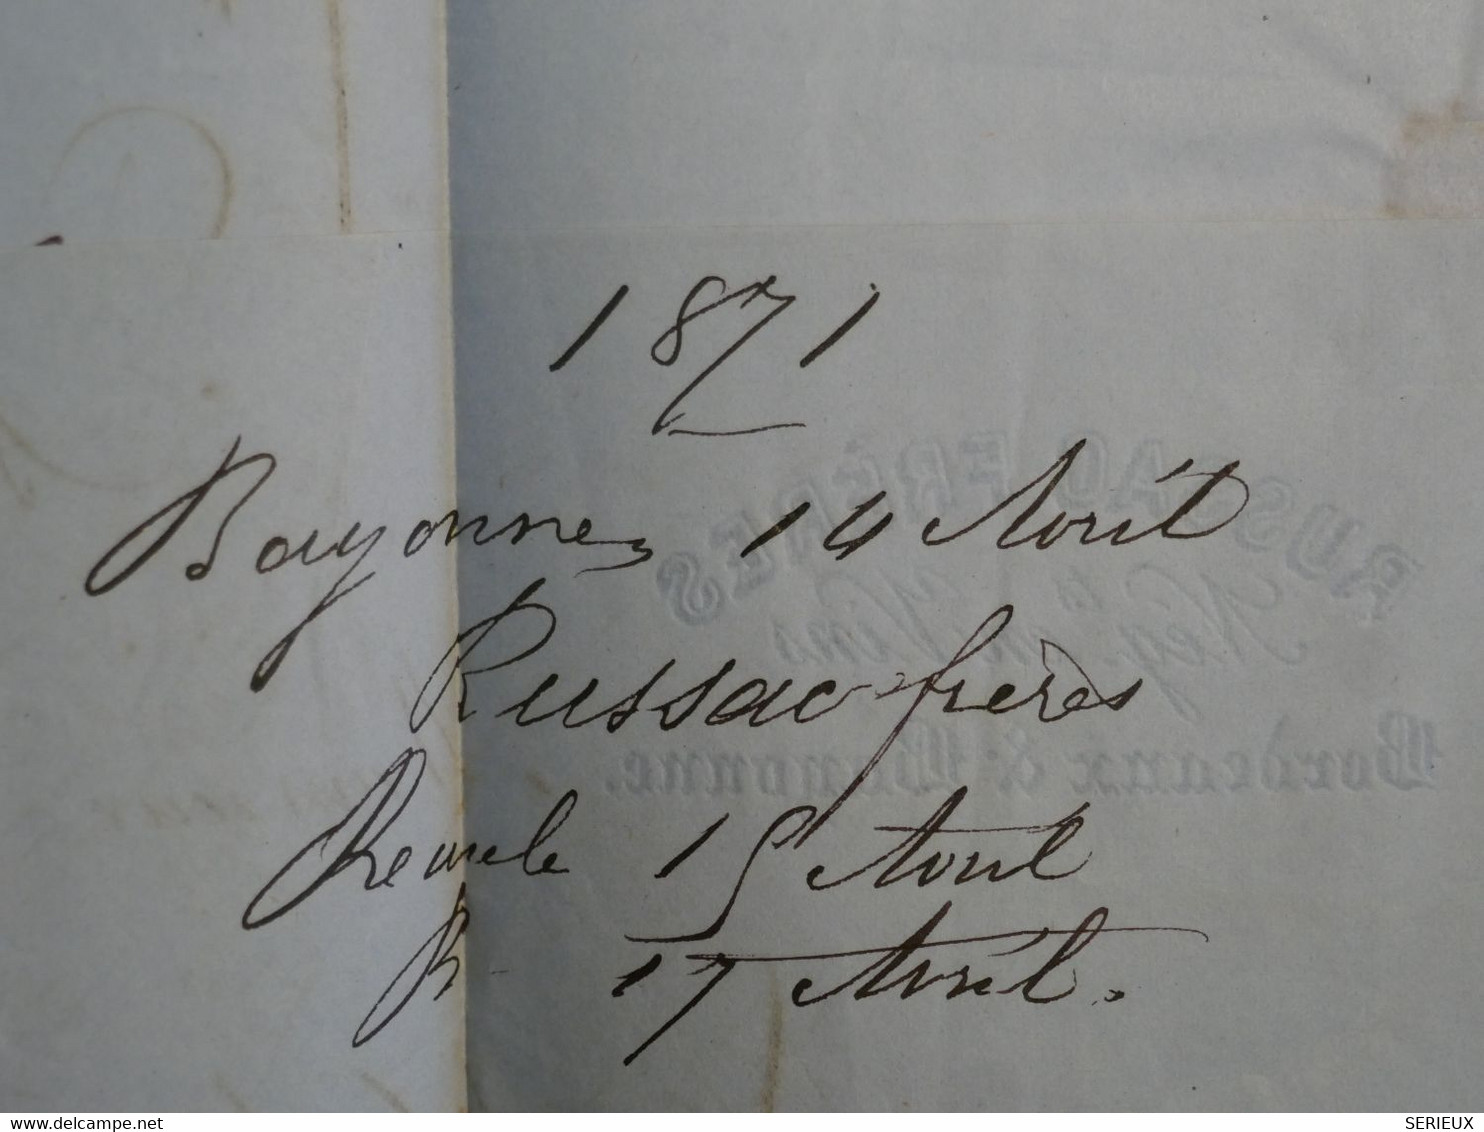 1871
Bayonne, 14 Avril
Russac frères
Reçue le 15 Avril
R. 17 Avril.
RUSSAC FRÈRES
Nég.ts en Vins
Bordeaux & Bayonne.
www.delcampe.net
SERIEUX